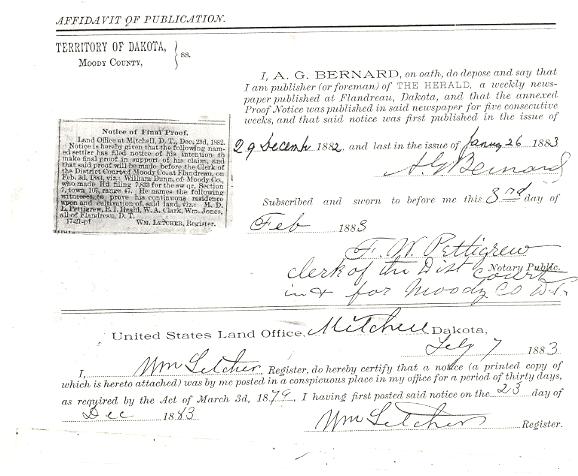 AFFIDAVIT OF PUBLICATION.
TERRITORY OF DAKOTA,
MOODY COUNTY, } ss.
I, A. G. BERNARD, on oath, do depose and say that
I am publisher (or foreman) of THE HERALD, a weekly news-
paper published at Flandreau, Dakota, and that the annexed
Proof Notice was published in said newspaper for five consecutive
weeks, and that said notice was first published in the issue of
29 Decemb 1882 and last in the issue of Jany 26 1883
A G Bernard
Subscribed and sworn to before me this 3rd day of
Feb 1883
F. W. Pettigrew
Notary Public.
clerk of the Dist Court
in & for Moody Co D.T.
Notice of Final Proof.
Land Office at Mitchell, D. T., Dec, 23d, 1882.
Notice is hereby given that the following nam-
ed settler has filed notice of his intention to
make final proof in support of his claim, and
that said proof will be made before the Clerk of
the District Court of Moody Co at Flandreau, on
Feb. 3d, 1883, viz: William Dunn, of Moody Co.,
who made Hd filing 7,833 for the sw qr, Section
7, town 105, range 47. He names the following
witnesses to prove his continuous residence
upon and cultivation of said land, viz: M. D.
L. Pettigrew, E. I. Heald, W. A. Clark, Wm. Jones,
all of Flandreau, D. T.
WM. LETCHER, Register.
United States Land Office, Mitchell Dakota,
Feby 7 1883
I, Wm Letcher Register, do hereby certify that a notice (a printed copy of
which is hereto attached) was by me posted in a conspicuous place in my office for a period of thirty days,
as required by the Act of March 3d, 1879, I having first posted said notice on the 23 day of
Dec 1883
Wm Letcher Register.